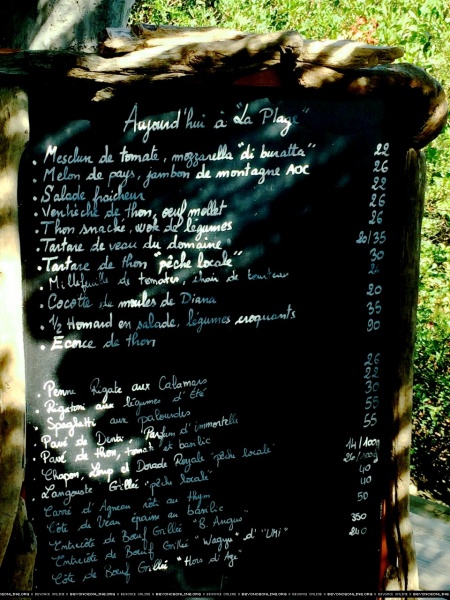 Aujourd'hui à "La Plage"
. Mesclun de tomate, mozzarella "di buratta" 22
. Melon de pays, jambon de montagne AOC 26
. Salade fraicheur 22
. Ventrèche de thon, oeuf mollet 26
. Thon snacké, wok de légumes 26
. Tartare de veau du domaine 20/35
. Tartare de thon "pêche locale" 30
. Millefeuille de tomates, chair de tourteau
. Cocotte de moules de Diana 20
. 1/2 Homard en salade, légumes croquants 35
. Ecorce de thon 90
. Penne Rigate aux Calamars 26
. Rigatoni aux légumes d'Été 22
. Spaghetti aux palourdes 30
. Pavé de Denti, Parfum d'immortelle 55
. Pavé de thon, tomate et basilic 55
. Chapon, Loup et Dorade Royale "pêche locale" 14/100g
. Langouste Grillée "pêche locale"
. Carré d'Agneau rôti au thym 40
. Côte de Veau épaisse au basilic 40
. Entrecôte de Boeuf Grillée "B. Angus" 50
. Entrecôte de Boeuf Grillée "Wagyu" d'"UMI" 350
. Côte de Boeuf Grillée "Hors d'Age" 240
BEYONDBONLINE.ORG